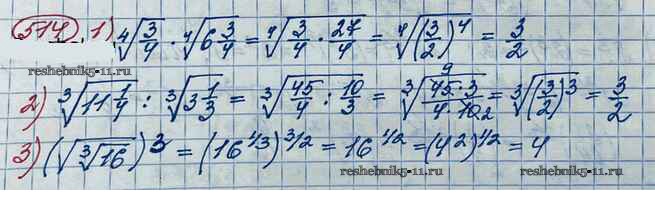 514. 1) ∜(3/4) · ∜(6 3/4) = ∜(3/4 · 27/4) = ∜((3/2)^4) = 3/2
reshebnik5-11.ru
2) ∛(11 1/4) : ∛(3 1/3) = ∛(45/4 : 10/3) = ∛(45 9 · 3 / 4 · 10 2) = ∛((3/2)^3) = 3/2
3) (√∛16)^3 = (16^1/3)^3/2 = 16^1/2 = (4^2)^1/2 = 4
reshebnik5-11.ru reshebnik5-11.ru